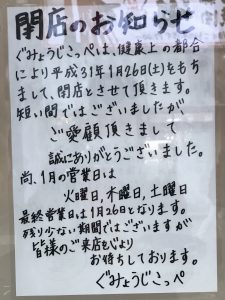 閉店のお知らせ
ぐみょうじこっぺは、健康上の都合
により平成31年1月26日(土)をもち
まして、閉店とさせて頂きます。
短い間ではございましたが
ご愛顧頂きまして
誠にありがとうございました。
尚、1月の営業日は
火曜日,木曜日,土曜日
最終営業日は1月26日となります。
残り少ない期間ではございますが
皆様のご来店を心より
お待ちしております。
ぐみょうじこっぺ